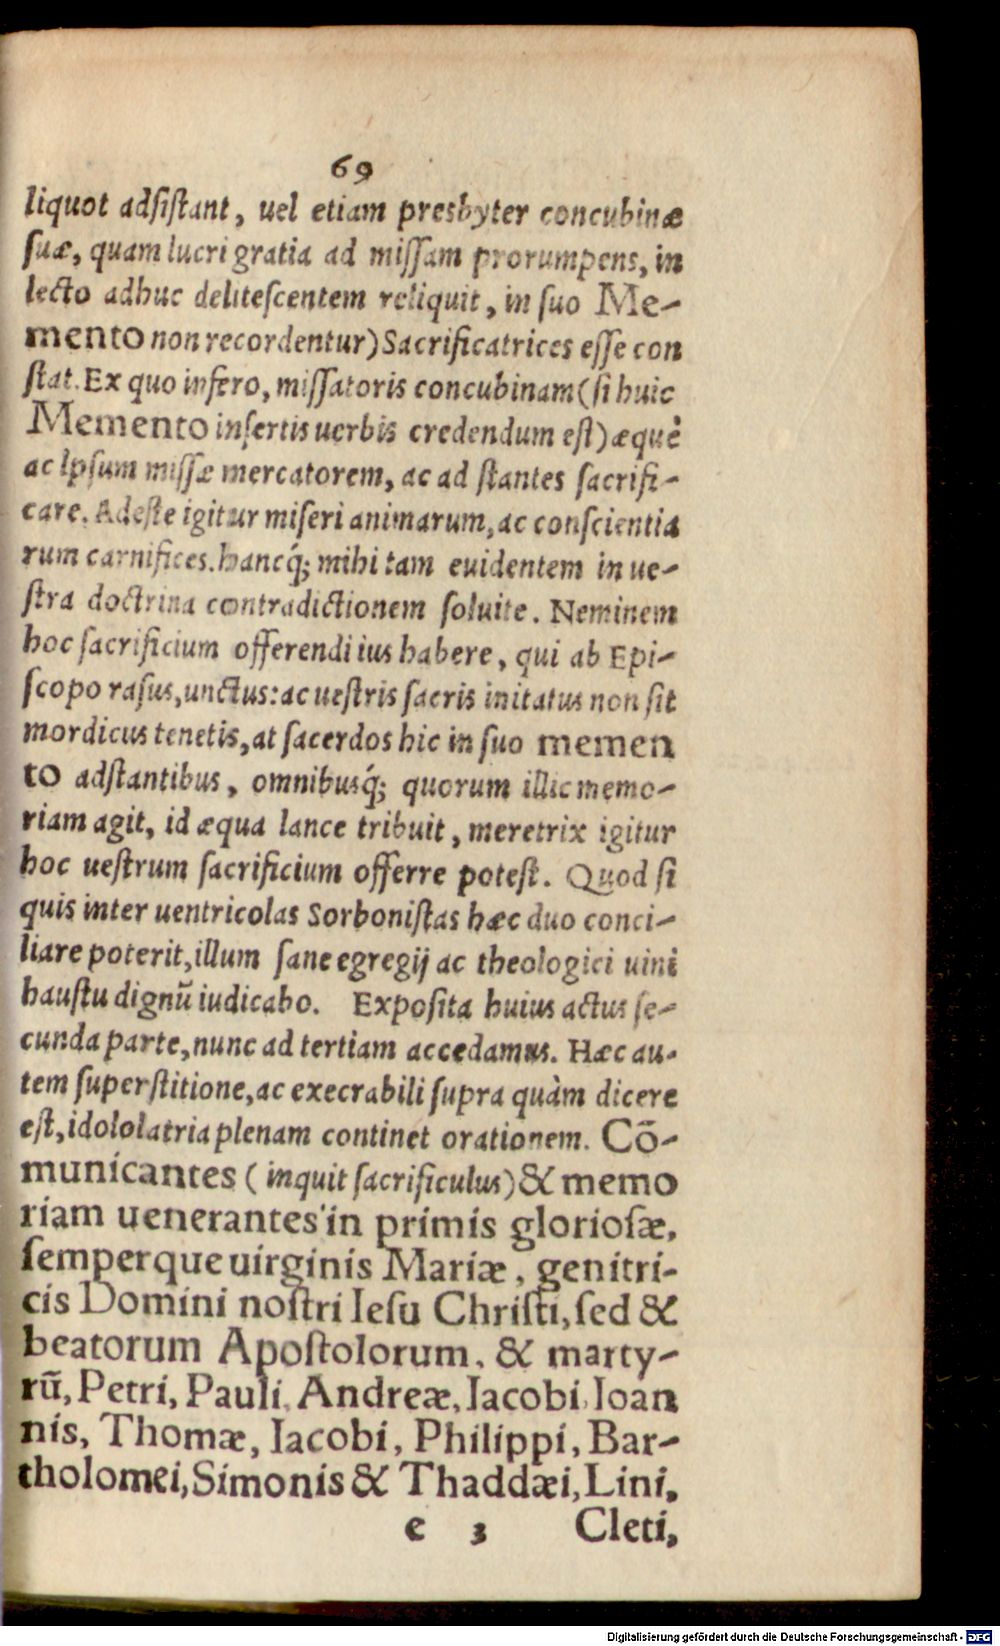 69
liquot adsiſtant, uel etiam presbyter concubinæ
ſuæ, quam lucri gratia ad miſſam prorumpens, in
lecto adhuc deliteſcentem reliquit, in ſuo Me-
mento non recordentur) Sacrificatrices eſſe con
ſtat. Ex quo infero, miſſatoris concubinam (ſi huic
Memento inſertis uerbis credendum eſt) æquè
ac Ipſum miſſæ mercatorem, ac ad ſtantes ſacrifi-
care. Adeſte igitur miſeri animarum, ac conſcientia
rum carnifices. hancq́; mihi tam euidentem in ue-
ſtra doctrina contradictionem ſoluite. Neminem
hoc ſacrificium offerendi ius habere, qui ab Epi-
ſcopo raſus, unctus: ac ueſtris ſacris initatus non ſit
mordicus tenetis, at ſacerdos hic in ſuo memen
to adſtantibus, omnibusq́; quorum illic memo-
riam agit, id æqua lance tribuit, meretrix igitur
hoc ueſtrum ſacrificium offerre poteſt. Quod ſi
quis inter uentricolas Sorboniſtas hæc duo conci-
liare poterit, illum ſane egregij ac theologici uini
hauſtu dignũ iudicabo. Expoſita huius actus ſe-
cunda parte, nunc ad tertiam accedamus. Hæc au-
tem ſuperſtitione, ac execrabili ſupra quàm dicere
eſt, idololatria plenam continet orationem. Cõ-
municantes (inquit ſacrificulus) & memo
riam uenerantes in primis glorioſæ,
ſemperque uirginis Mariæ, genitri-
cis Domini noſtri Ieſu Chriſti, ſed &
beatorum Apoſtolorum, & marty-
rũ, Petri, Pauli, Andreæ, Iacobi, Ioan
nis, Thomæ, Iacobi, Philippi, Bar-
tholomei, Simonis & Thaddæi, Lini,
e 3 Cleti,
Digitalisierung gefördert durch die Deutsche Forschungsgemeinschaft - DFG